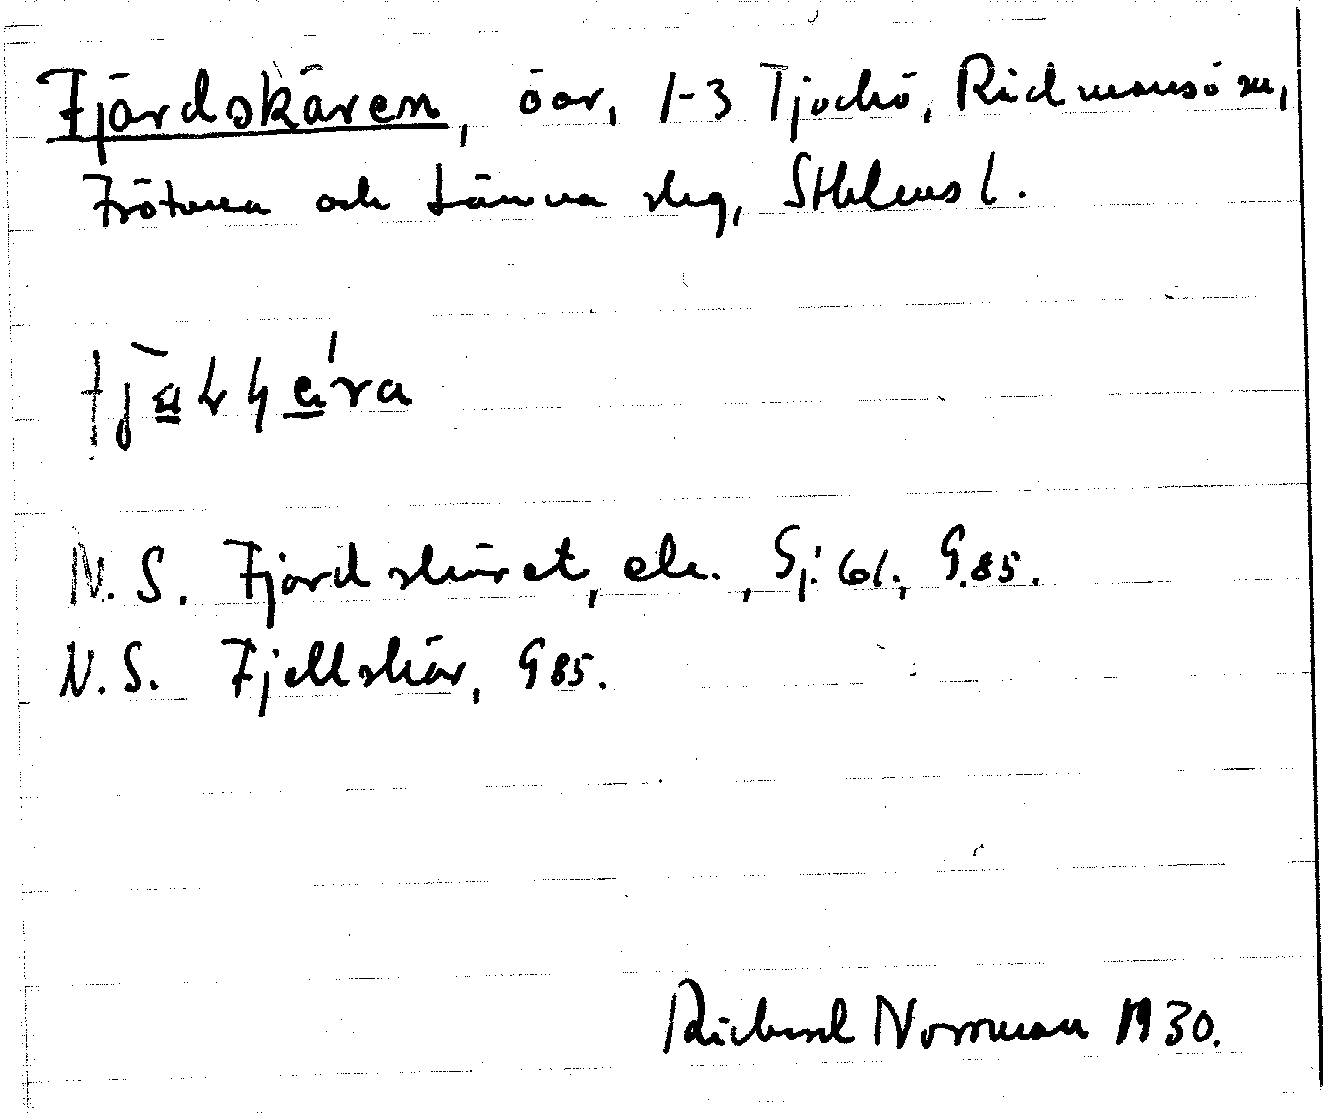 Fjärdskären, öar, 1-3 Tjockö, Rådmansö sn,
Frötuna och Länna skg, Sthlms l.
N. S. Fjärdskäret, ek., G. 85.
N. S. Fjellskär, G 85.
Richard Norrman 1930.